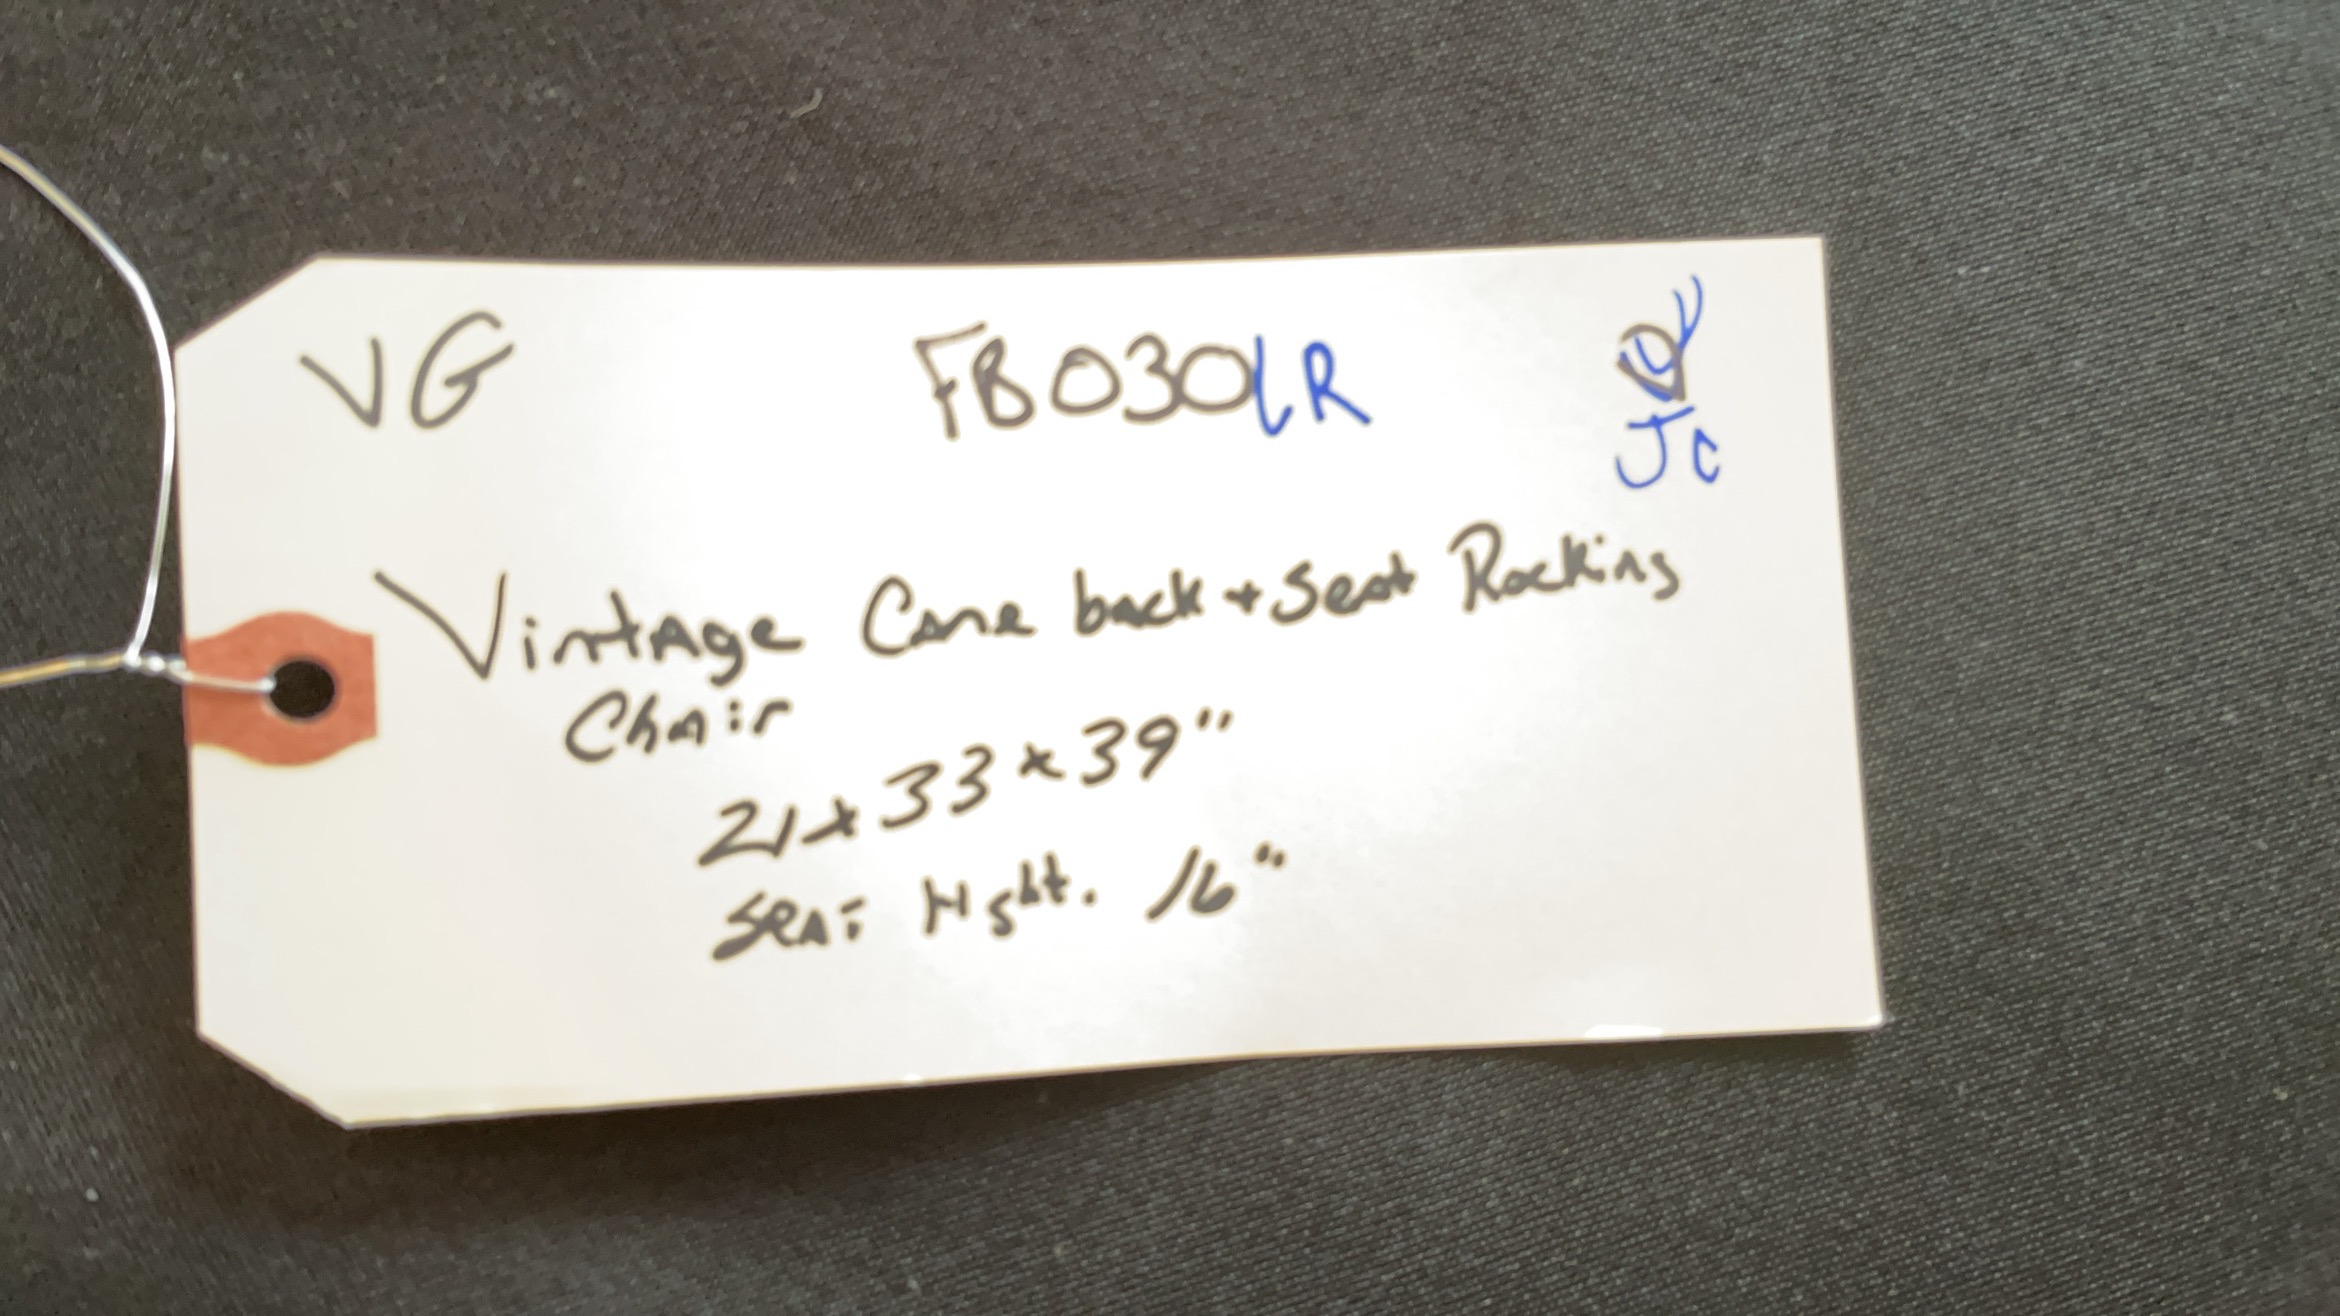 VG FB030LR
JC
Vintage Cane back + Seat Rocking
Chair
21 x 33 x 39"
Seat Hght. 16"